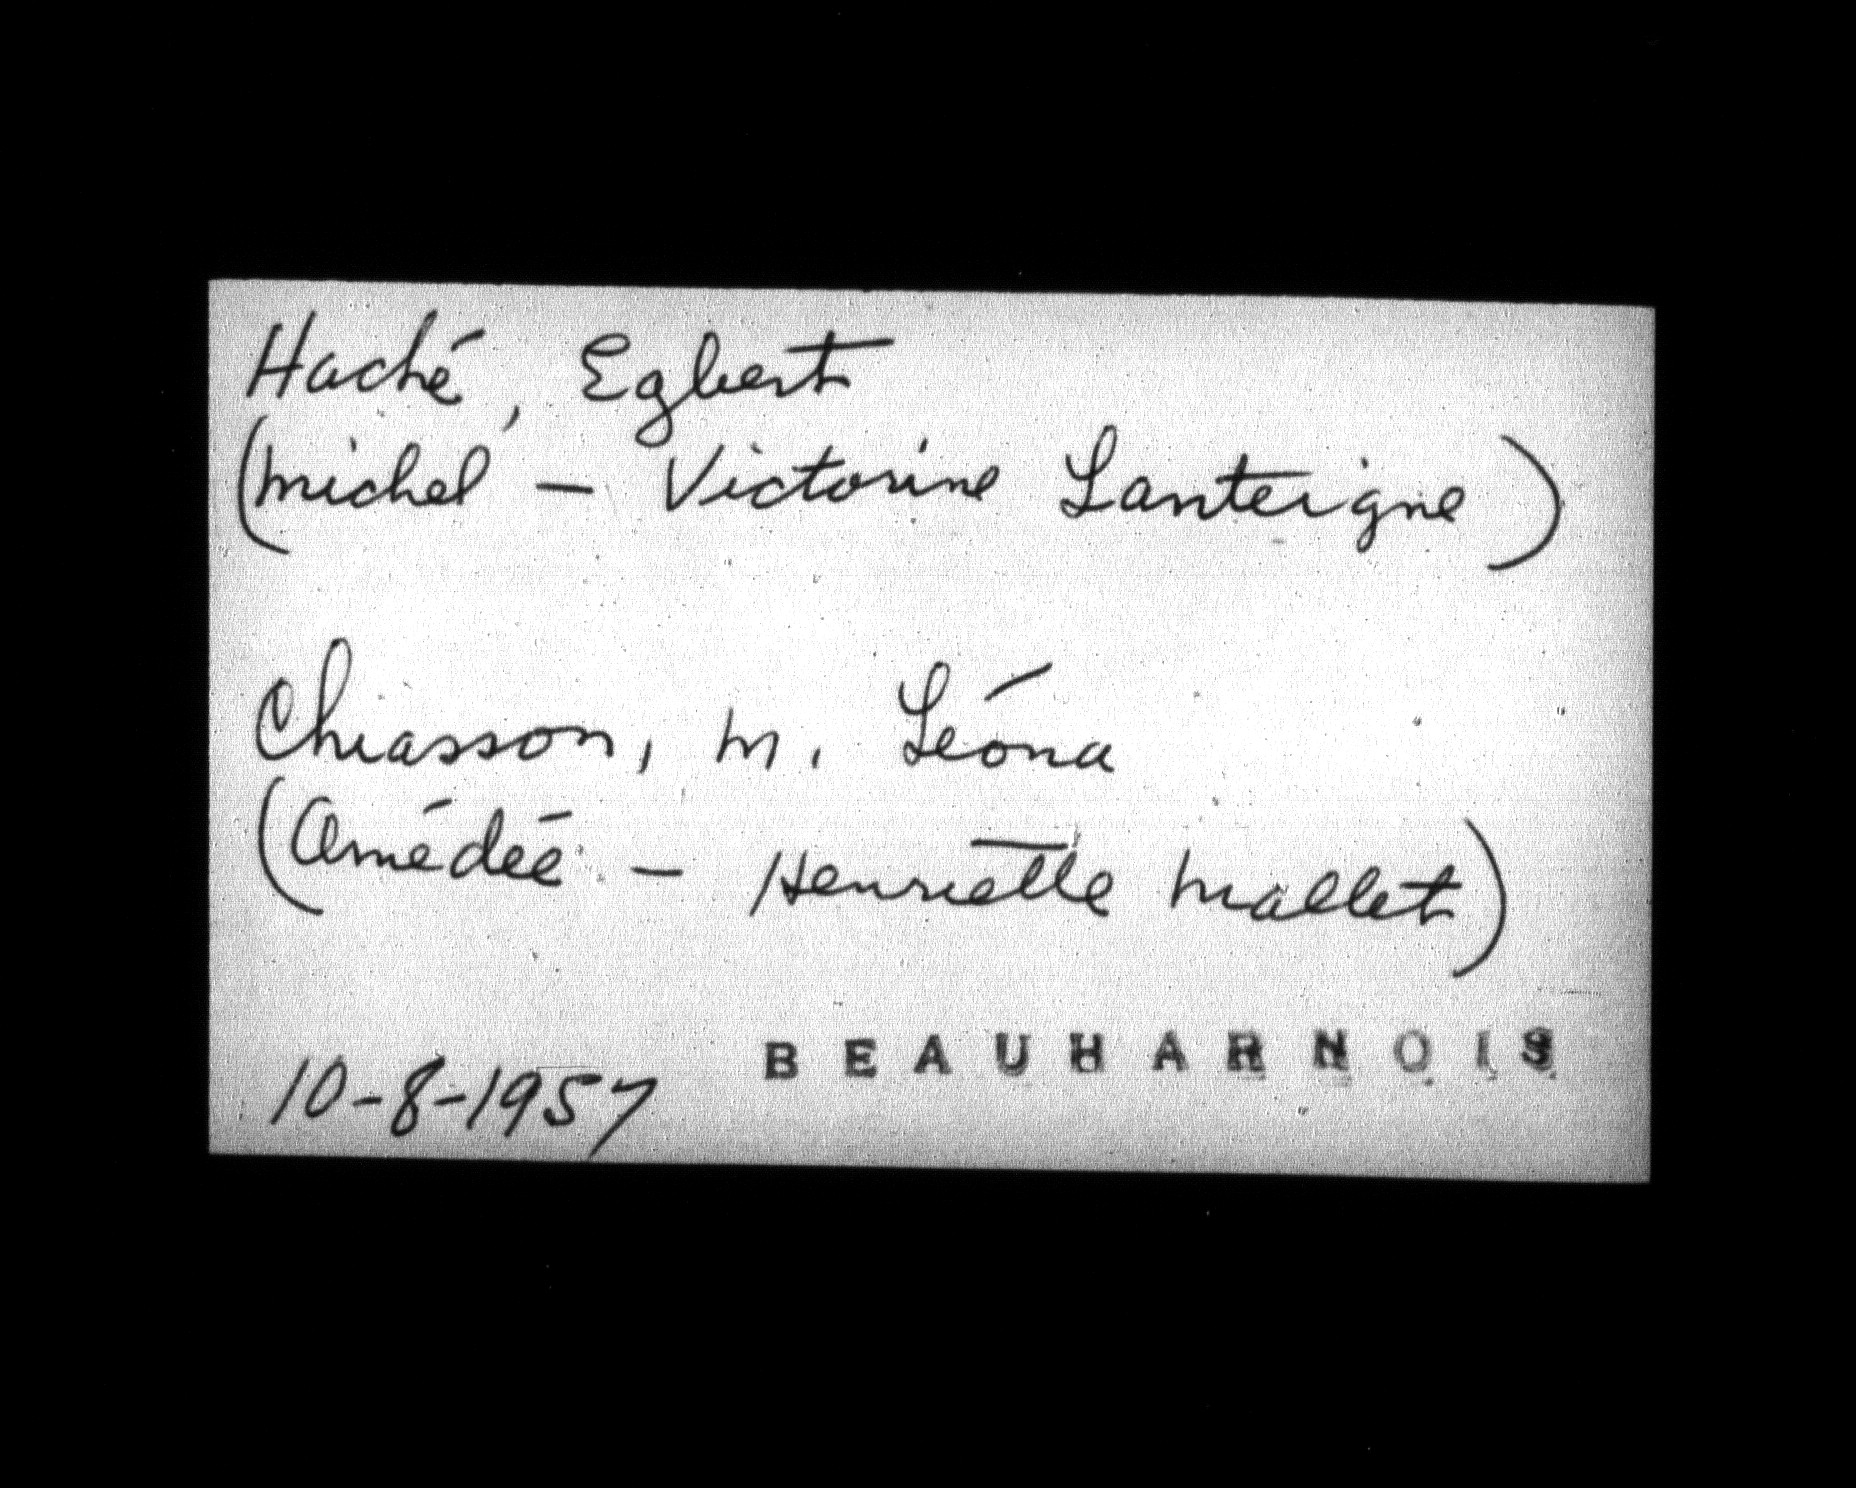 Haché, Egbert
(Michel - Victorine Lanteigne)
Chiasson, M. Léona
(Amédée - Henriette Mallet)
BEAUHARNOIS
10-8-1957